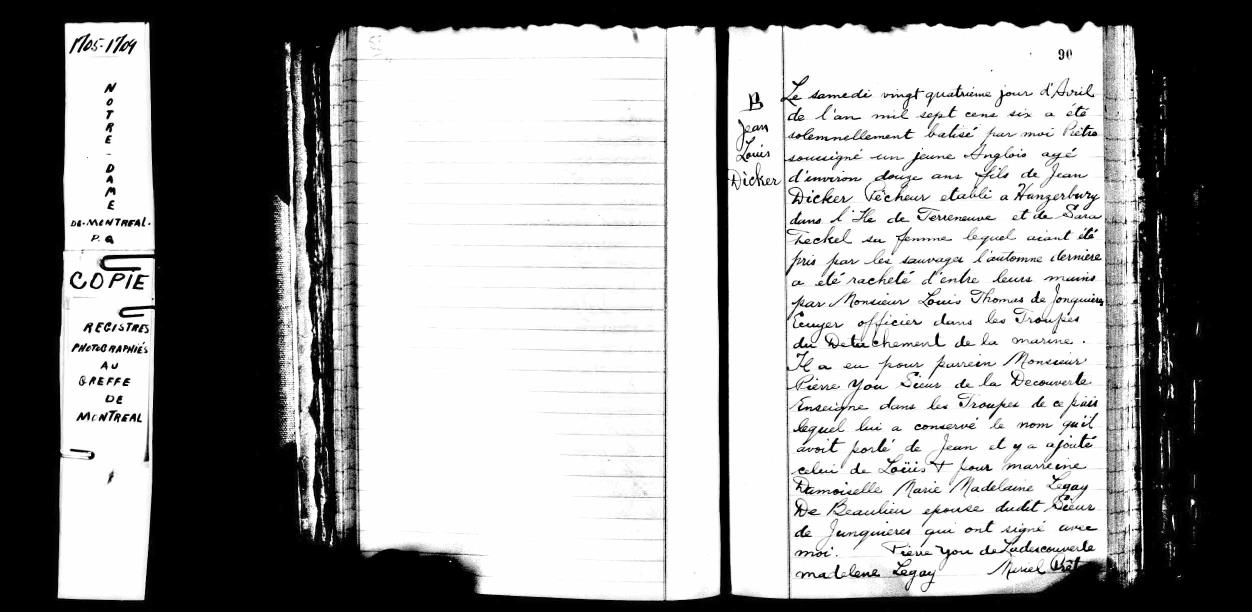 1705-1709
NOTRE-DAME
DE-MONTREAL-
P. Q
COPIE
REGISTRES
PHOTOGRAPHIÉS
AU
GREFFE
DE
MONTREAL
90
B
Jean
Louis
Dicker
Le samedi vingt quatrième jour d'Avril
de l'an mil sept cens six a été
solemnellement batisé par moi Prêtre
soussigné un jeune Anglois agé
d'environ douze ans fils de Jean
Dicker Pêcheur etabli a Hangerbury
dans l'Ile de Terreneuve et de Sara
Teckel sa femme lequel aiant été
pris par les sauvages l'automne derniere
a été racheté d'entre leurs mains
par Monsieur Louis Thomas de Jonquieres
Ecuyer officier dans les Troupes
du Detachement de la marine.
Il a eu pour parrein Monsieur
Pierre You Sieur de la Decouverte
Enseigne dans les Troupes de ce païs
lequel lui a conservé le nom qu'il
avoit porté de Jean et y a ajouté
celui de Loüis & pour marreine
Damoiselle Marie Madelaine Legay
De Beaulieu epouse dudit Sieur
de Junquieres qui ont signé avec
moi. Pierre You de Ladescouverte
madelene Legay Meriel Prêt